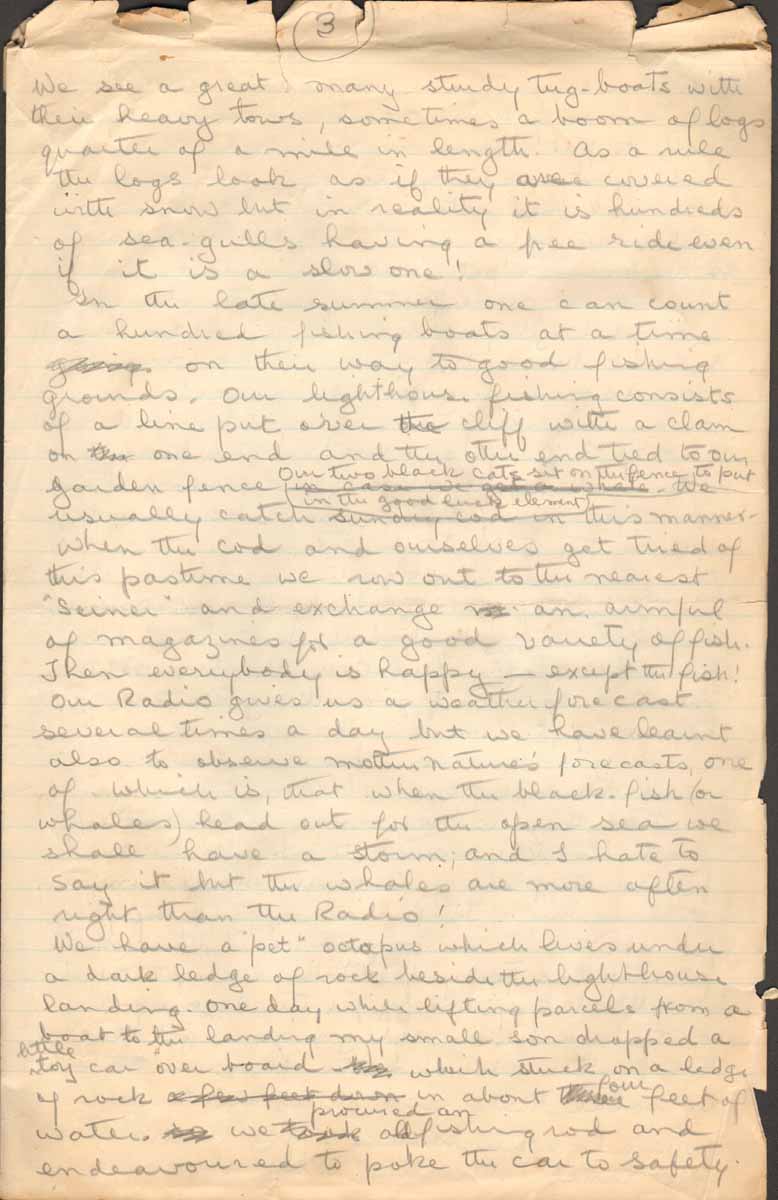 3
We see a great many sturdy tug-boats with
their heavy tows, sometimes a boom of logs
quarter of a mile in length. As a rule
the logs look as if they were covered
with snow but in reality it is hundreds
of sea-gulls having a free ride even
if it is a slow one!
In the late summer one can count
a hundred fishing boats at a time
on their way to good fishing
grounds. Our lighthouse fishing consists
of a line put over the cliff with a clam
on one end and the other end tied to our
Our two black cats sit on the fence to put
garden fence (in case we get a whale. We
in the good luck element)
usually catch sunday cod in this manner.
When the cod and ourselves get tried of
this pastime we row out to the nearest
"Seiner" and exchange an armful
of magazines for a good variety of fish.
Then everybody is happy — except the fish!
Our Radio gives us a weather forecast
several times a day but we have learnt
also to observe mother nature's forecasts, one
of which is, that when the black-fish (or
whales) head out for the open sea we
shall have a storm; and I hate to
say it but the whales are more often
right than the Radio!
We have a "pet" octopus which lives under
a dark ledge of rock beside the lighthouse
landing. One day while lifting parcels from a
boat to the landing my small son dropped a
little
toy car over board which stuck on a ledge
four
of rock a few feet down in about three feet of
procured an
water. we took old fishing rod and
endeavoured to poke the car to safety.